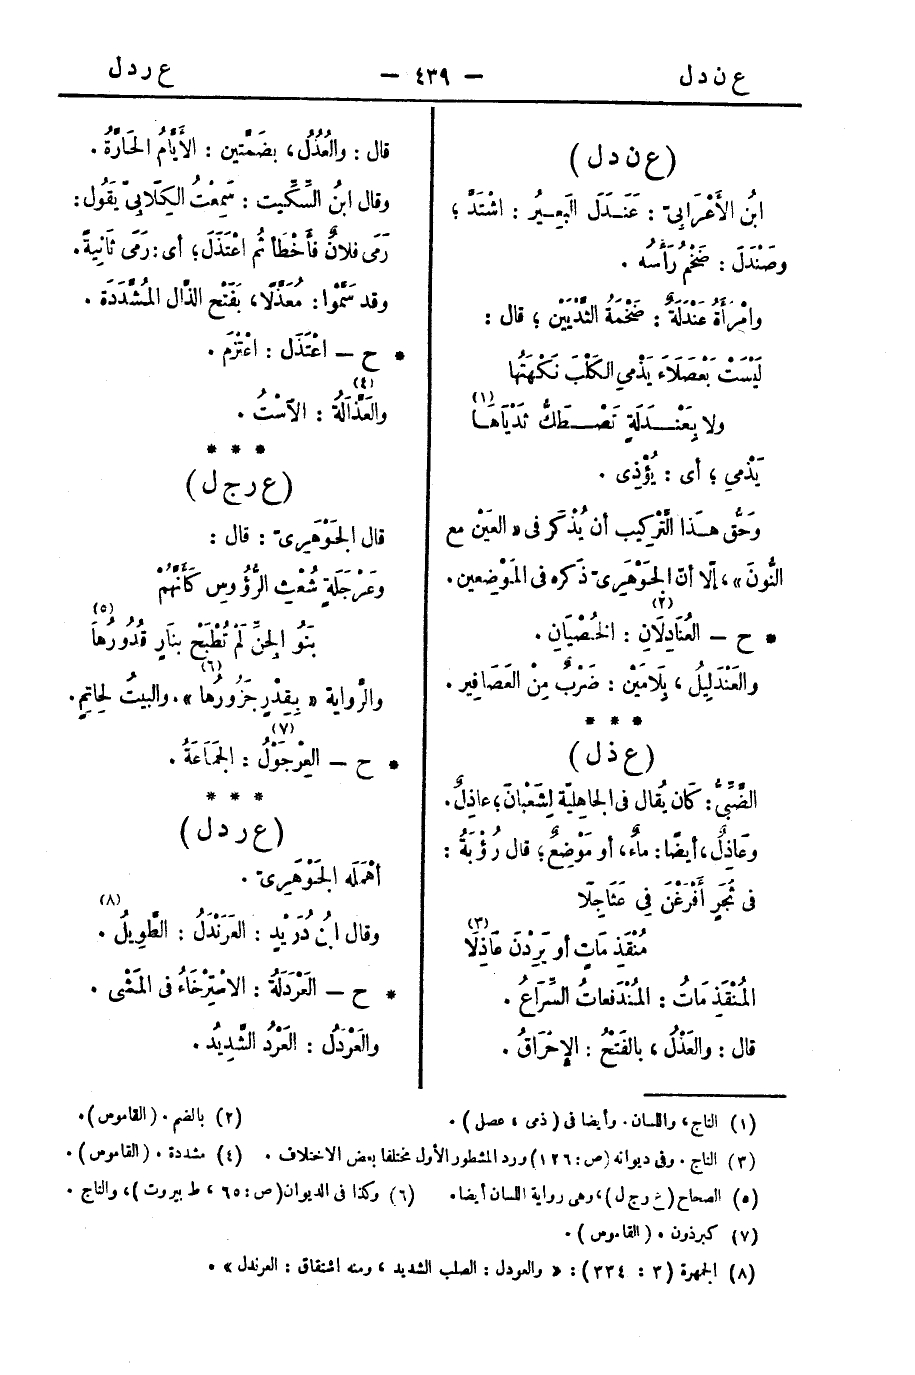 ع ن د ل — ٤٣٩ — ع ر د ل
(ع ن د ل)
ابنُ الأَعْرابىّ : عَنَـدَلَ البَعِـيرُ : اشْتَدَّ ؛
وصَنْدَلَ : ضَخُمَ رَأْسُه .
وامْرَأَةٌ عَنْدَلَةٌ : ضَخْمَةُ الثَّدْيَيْن ؛ قال :
لَيْسَتْ بعَصْلَاءَ يَذْمِي الكَلْبَ نَكْهَتُها
ولا بِعَنْـدَلَةٍ تَصْـطَكُّ ثَدْيَاهَـا (١)
يَذْمِي ؛ أى : يُؤْذِى .
وَحَقُّ هـذا التَّرْكِيب أن يُذْكَر فى « العَيْن مع
النُّون » ، إلّا أنّ الجَوْهَرِىّ ذَكره فى المَوْضِعين.
* ح — العُنَادِلَان (٢) : الخُصْيَان .
والعَنْدَلِيلُ ، بِلَامَيْن : ضَرْبٌ مِنْ العَصَافِير .
* * *
(ع ذ ل)
الضَّبِّىُّ : كَان يُقال فى الجاهِليَّة لِشَعْبانَ ؛ عاذِلٌ.
وعَاذِلٌ ، أيضًا : ماءٌ ، أو مَوْضِعٌ ؛ قال رُؤْبَةُ :
فى ثُجَرٍ أَفْرَغْنَ فِي عَثَاجِلَا
مُنْقَذِمَاتٍ أو يَرِدْنَ عَاذِلَا (٣)
المُنْقَذِمَاتُ : المُنْدَفعاتُ السِّرَاعُ .
قال : والعَذْلُ ، بالفَتْحُ : الإحْرَاقُ .
قال : والعُذُلُ ، بضَمَّتَين : الأَيَّامُ الحَارَّةُ .
وقال ابنُ السِّكِّيت : سَمِعْتُ الكِلَابِىّ يَقُول :
رَمَى فلانٌ فأَخْطَأَ ثُم اعْتَذَلَ ؛ أى : رَمَى ثَانِيةً.
وقد سَمَّوْا : مُعَذَّلًا ، بفَتْح الذَّال المُشَدَّدَة .
* ح — اعْتَذَل : اعْتَزَم .
والعَذَّالَةُ (٤) : الآسْتُ .
* * *
(ع ر ج ل)
قال الجَوْهَرِىّ : قال :
وعَرْجَلَةٍ شُعْثِ الرُّؤُوسِ كَأَنَّهُمْ
بَنُو الجِنِّ لَمْ تُطْبَخْ بنَارٍ قُدُورُهَا (٥)
والرِّواية « بِقِدْرٍ جَزُورُها (٦) » . والبيتُ لحِاتِمٍ.
* ح — العِرْجَوْلُ (٧) : الجَمَاعَةُ .
* * *
(ع ر د ل)
أَهْمَلَه الجَوْهَرِىّ .
وقال ابنُ دُرَيْدٍ : العَرَنْدَلُ : الطَّوِيلُ (٨) .
* ح — العَرْدَلَةُ : الاسْتِرْخَاءُ فى المَشْى .
والعَرْدَلُ : العَرْدُ الشَّدِيدُ .
(١) التاج ، واللسان . وأيضا فى ( ذمى ، عصل ) . (٢) بالضم . ( القاموس ) .
(٣) التاج . وفى ديوانه ( ص : ١٢٦ ) ورد المشطور الأول مختلفا بعض الاختلاف . (٤) مشددة . ( القاموس ) .
(٥) الصحاح ( ع ر ج ل ) ، وهى رواية اللسان أيضا . (٦) وكذا فى الديوان ( ص : ٦٥ ، ط بيروت ) ، والتاج .
(٧) كبرذون . ( القاموس ) .
(٨) الجمهرة ( ٣ : ٣٣٤ ) : « والعودل : الصلب الشديد ، ومنه اشتقاق : العرندل » .